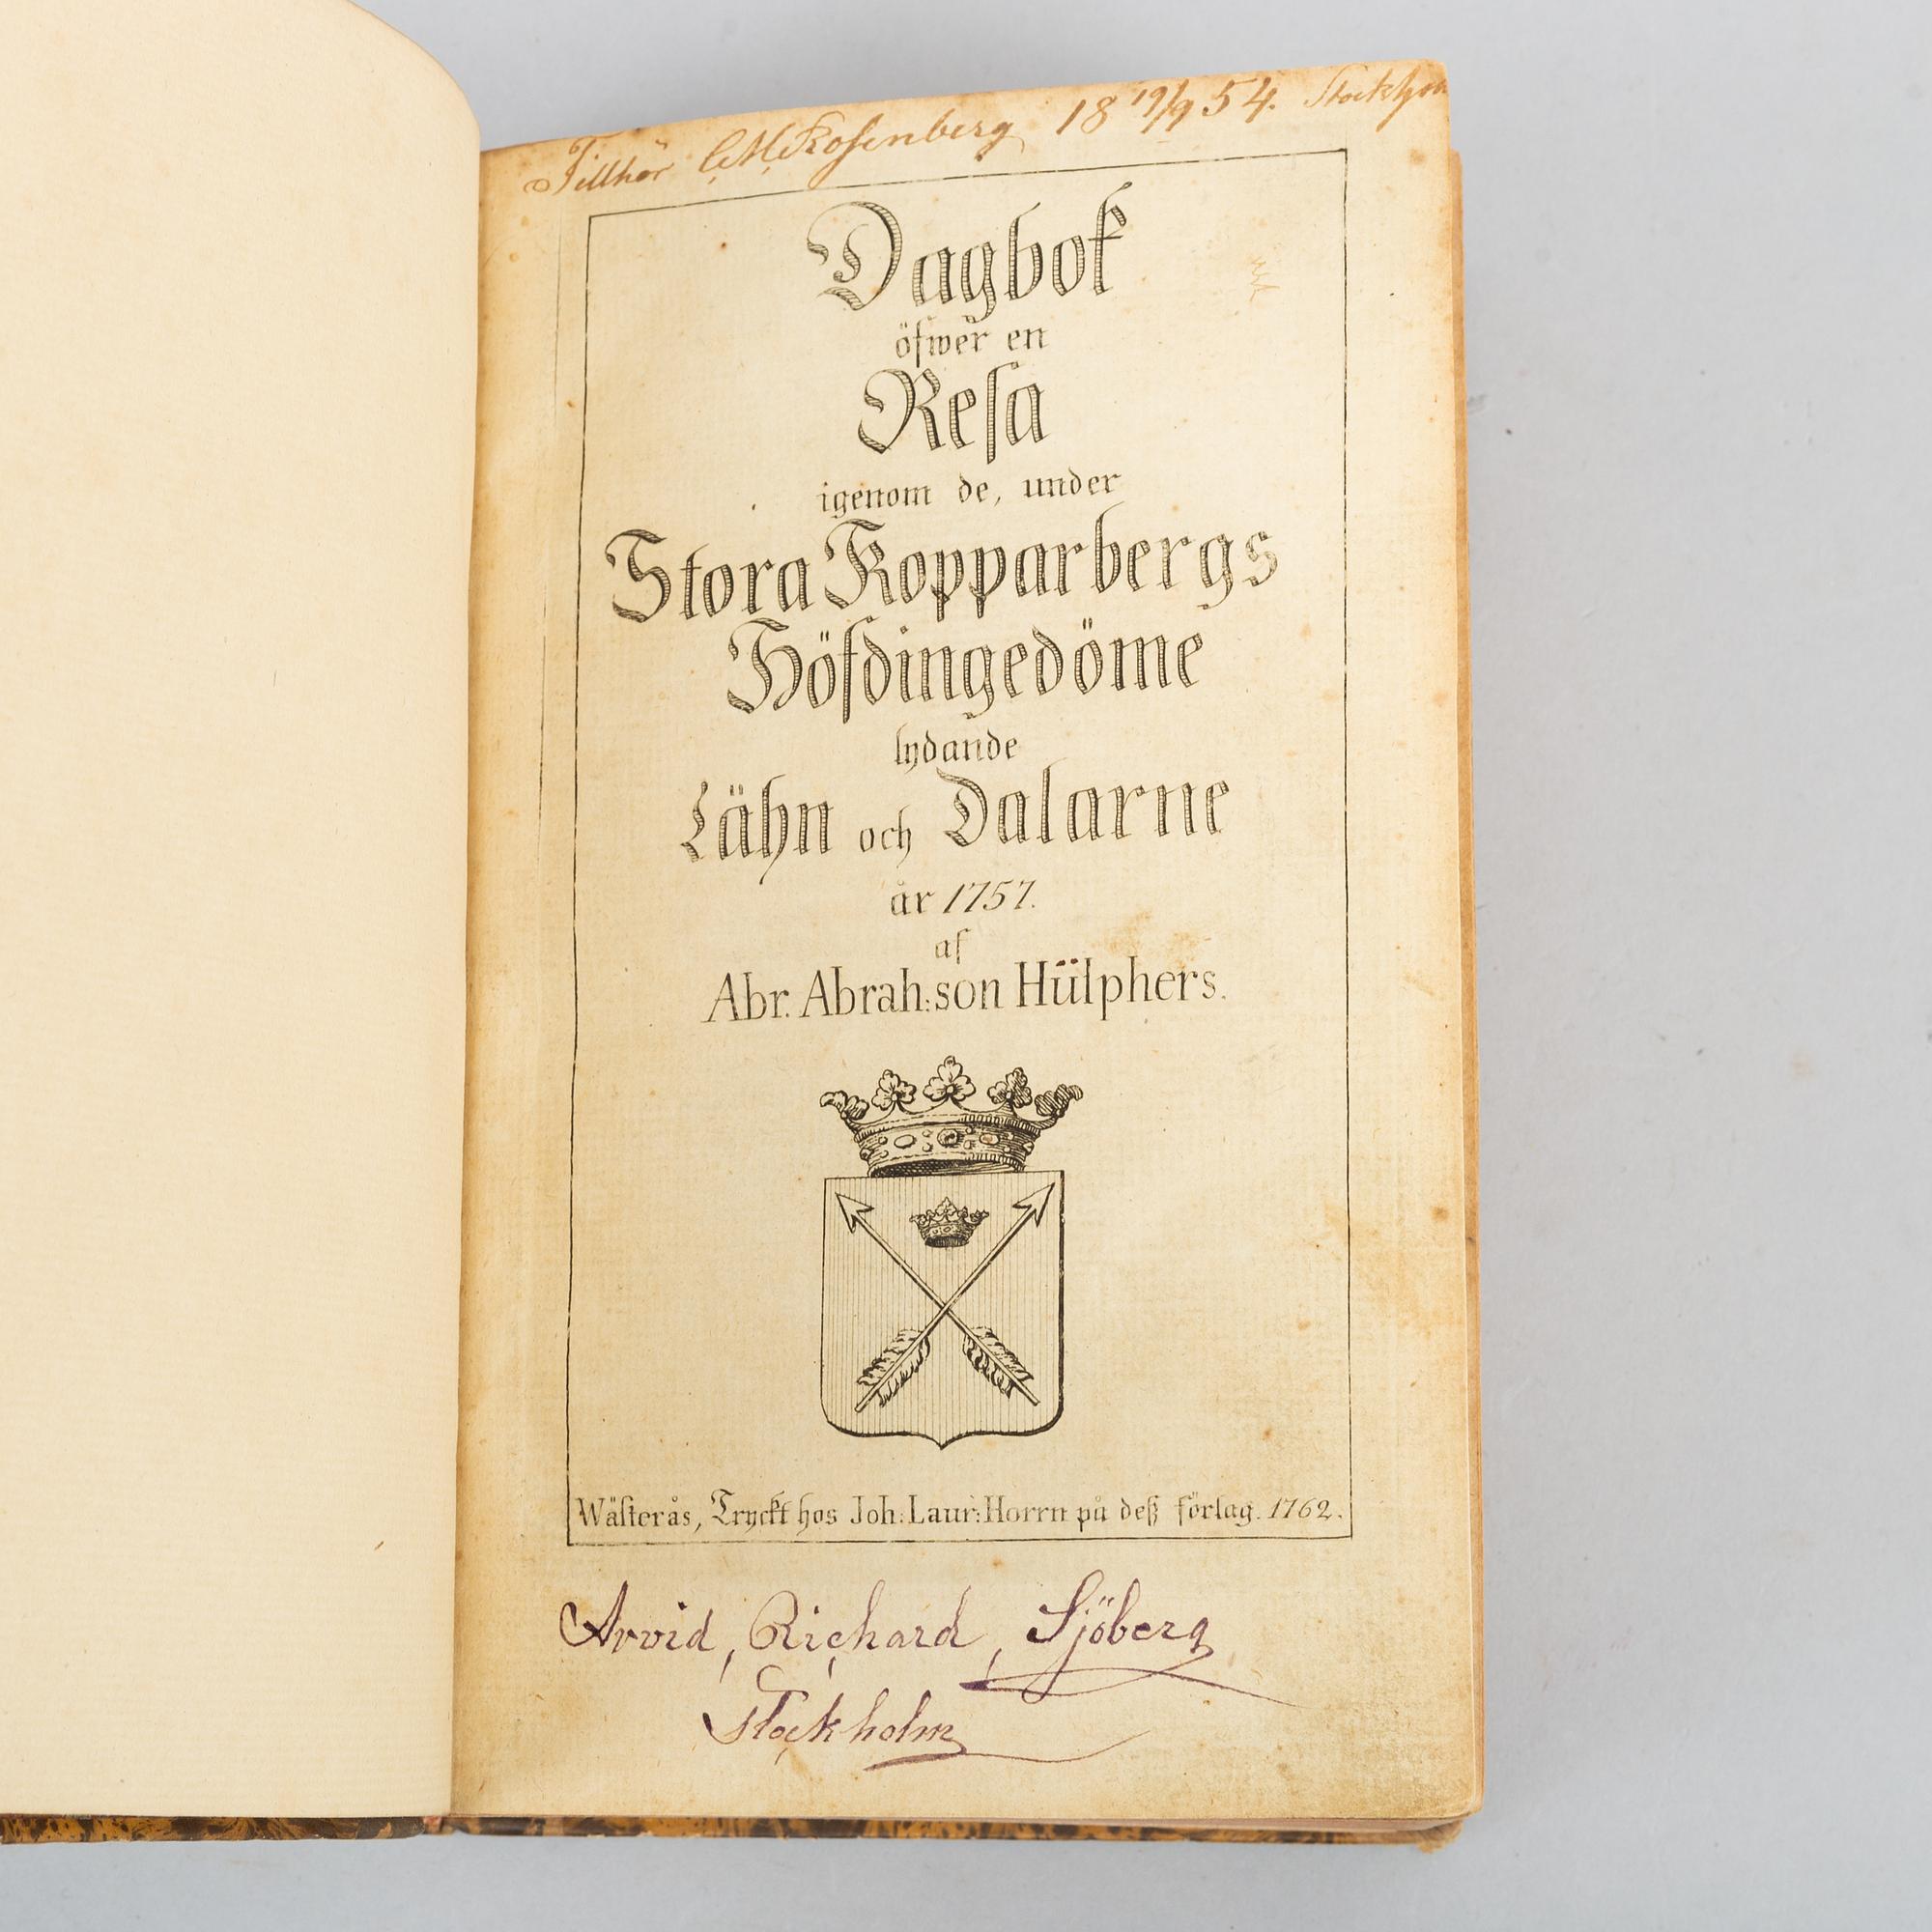 Tillhör C.M. Rosenberg 18 19/9 54. Stockholm
Dagbok
öfwer en
Resa
igenom de, under
Stora Kopparbergs
Höfdingedöme
lydande
Lähn och Dalarne
år 1757.
af
Abr. Abrah:son Hülphers.
Wästerås, Tryckt hos Joh: Laur: Horrn på deß förlag. 1762.
Arvid, Richard, Sjöberg
Stockholm